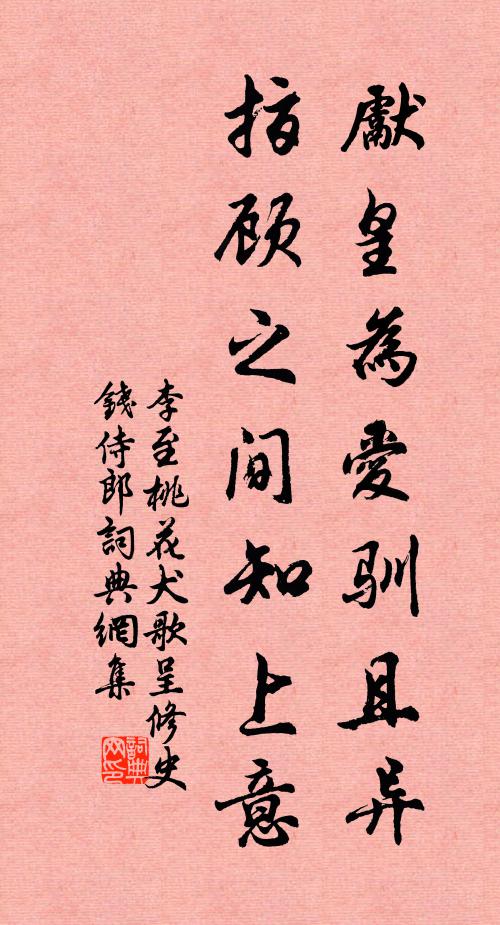 獻皇為愛馴且异
指顾之間知上意
李至桃花犬歌呈修史
錢侍郎詞典網集
詞典
网印